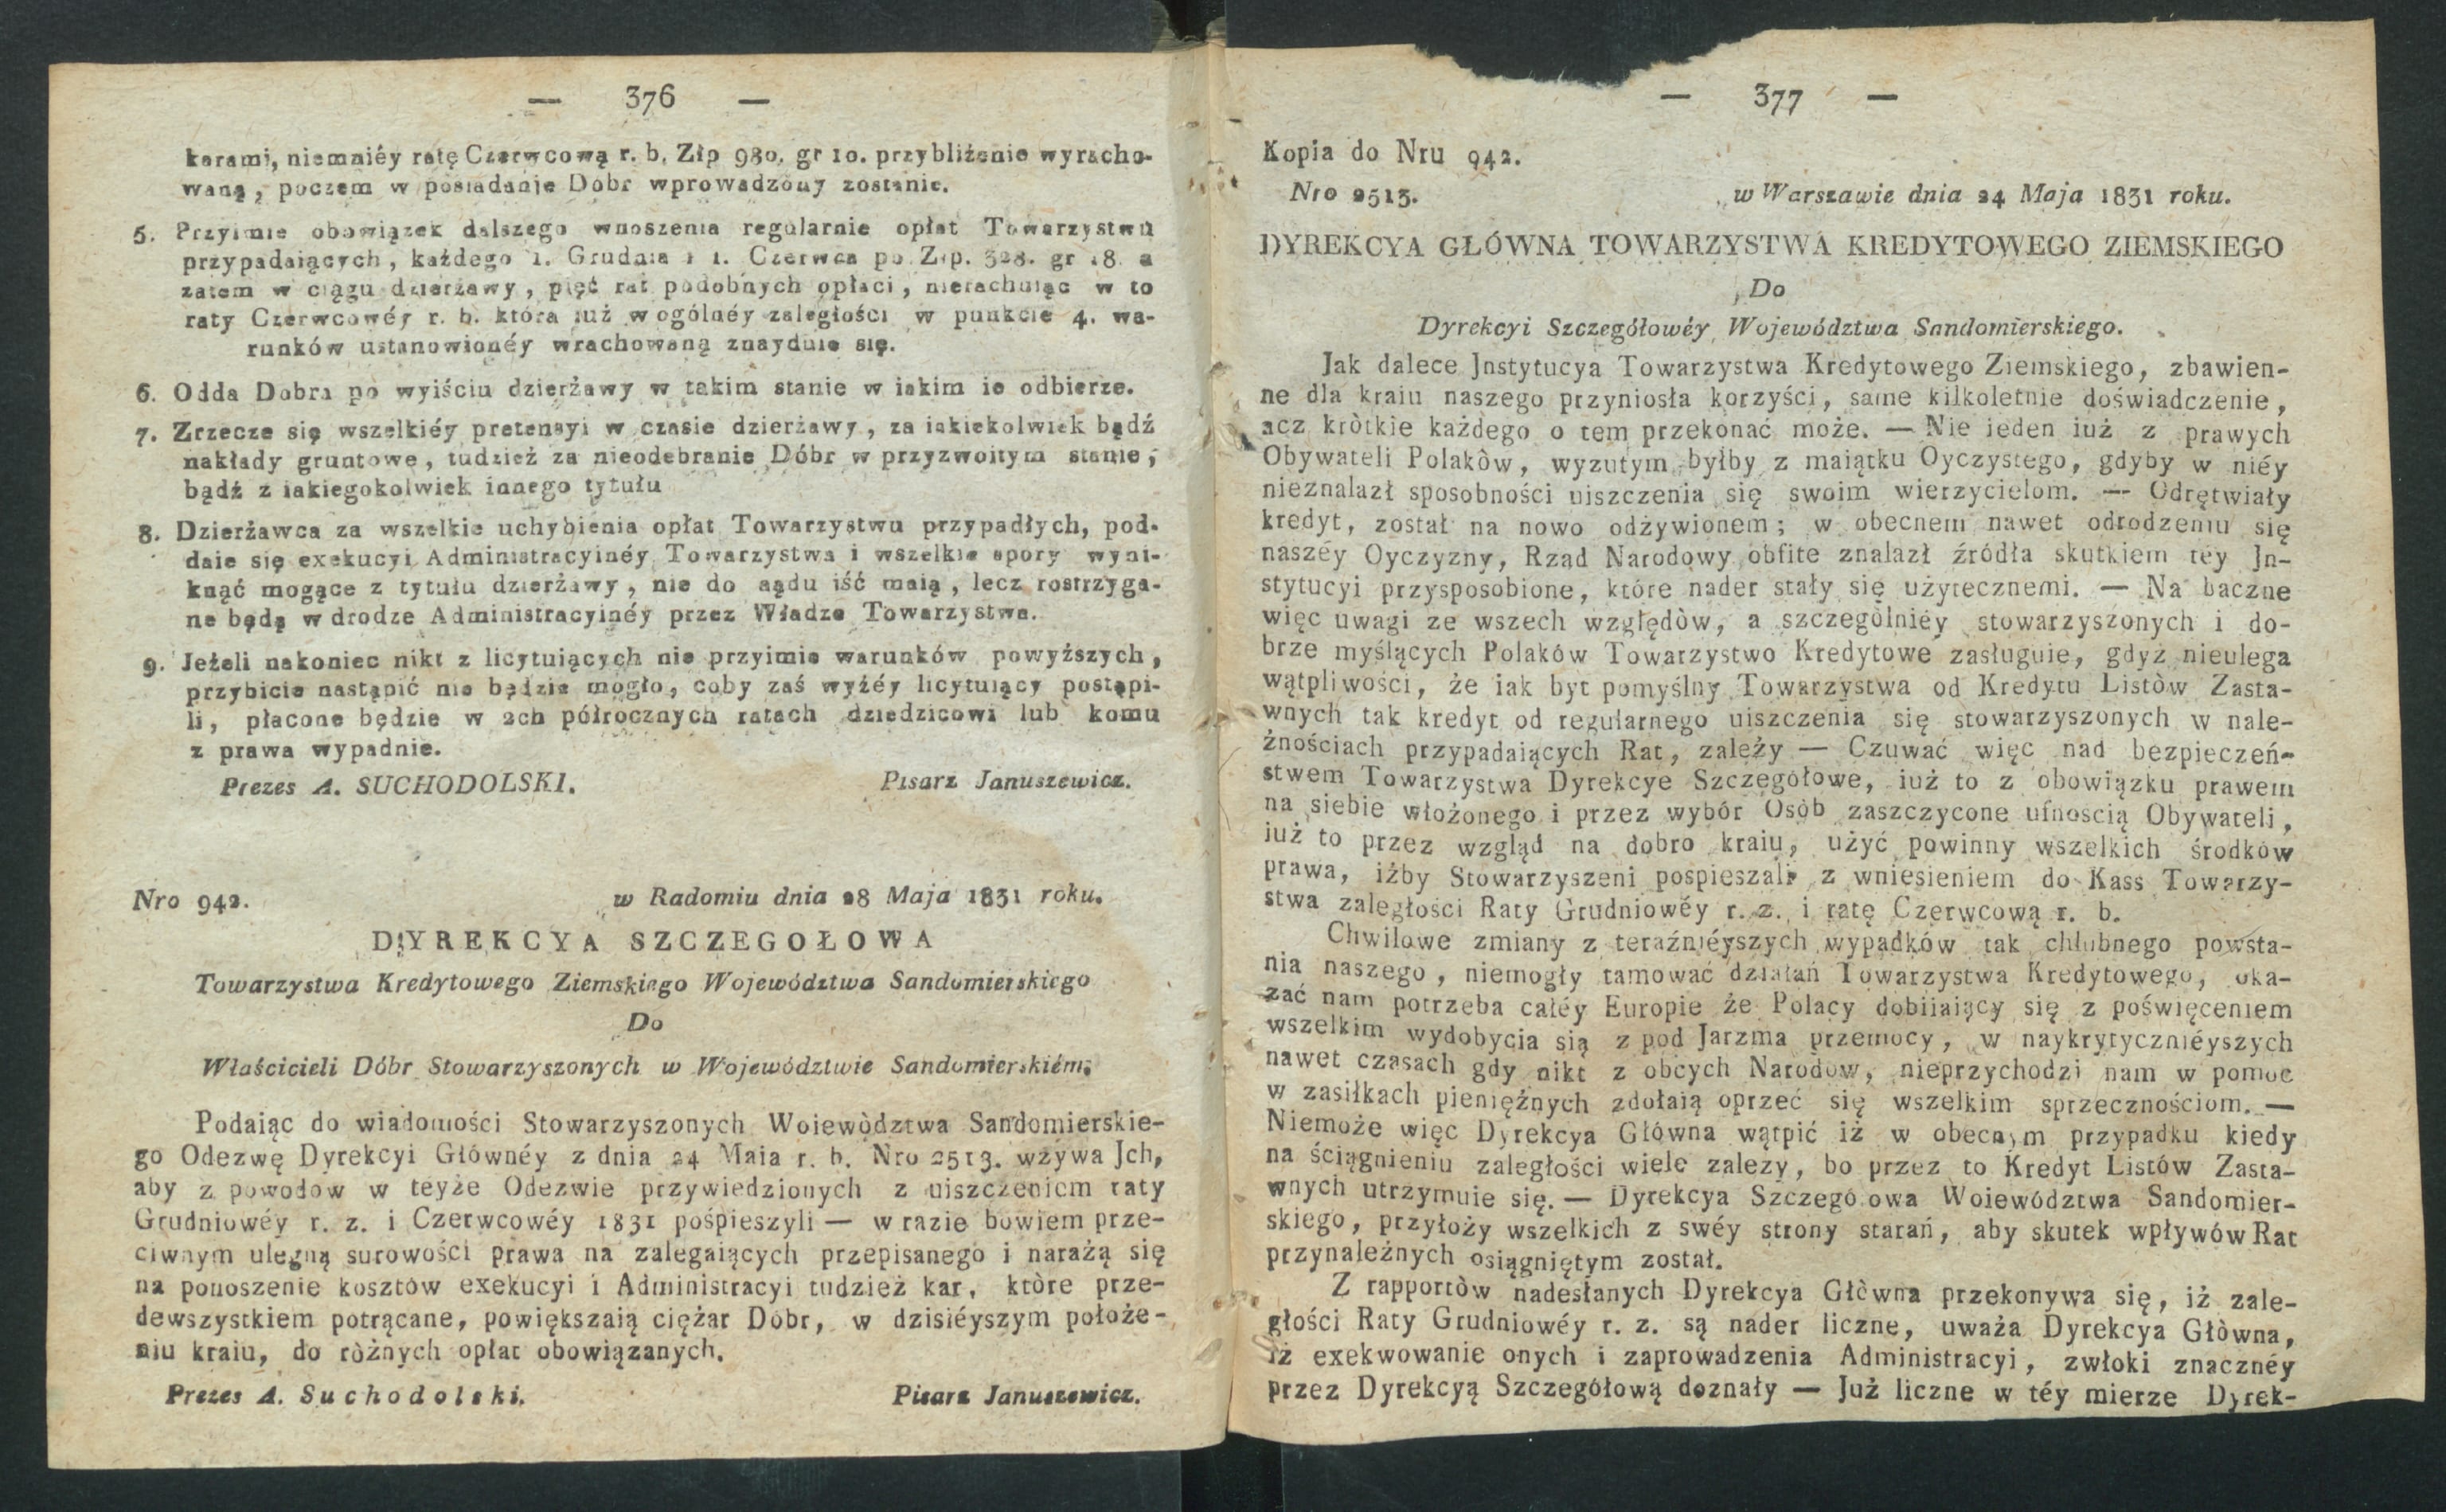 — 376 —
karami, niemniéy ratę Czerwcową r. b. Złp 980. gr 10. przybliżenie wyracho-
waną, poczem w posiadanie Dóbr wprowadzony zostanie.
5. Przyimie obowiązek dalszego wnoszenia regularnie opłat Towarzystwu
przypadaiących, każdego 1. Grudnia i 1. Czerwca po Złp. 328. gr 18 a
zatem w ciągu dzierżawy, pięć rat podobnych opłaci, nierachuiąc w to
raty Czerwcowéy r. b. która iuż w ogólnéy zaległości w punkcie 4. wa-
runków ustanowionéy wrachowaną znayduie się.
6. Odda Dobra po wyiściu dzierżawy w takim stanie w iakim ie odbierze.
7. Zrzecze się wszelkiéy pretensyi w czasie dzierżawy, za iakiekolwiek bądź
nakłady gruntowe, tudzież za nieodebranie Dóbr w przyzwoitym stanie,
bądź z iakiegokolwiek innego tytułu
8. Dzierżawca za wszelkie uchybienia opłat Towarzystwu przypadłych, pod-
daie się exekucyi Administracyinéy Towarzystwa i wszelkie spory wyni-
knąć mogące z tytułu dzierżawy, nie do sądu iść maią, lecz rostrzyga-
ne będą w drodze Administracyinéy przez Władze Towarzystwa.
9. Jeżeli nakoniec nikt z licytuiących nie przyimie warunków powyższych,
przybicie nastąpić nie będzie mogło, coby zaś wyżéy licytuiący postąpi-
li, płacone będzie w 2ch półrocznych ratach dziedzicowi lub komu
z prawa wypadnie.
Prezes A. SUCHODOLSKI. Pisarz Januszewicz.
Nro 942. w Radomiu dnia 28 Maja 1831 roku.
DYREKCYA SZCZEGOŁOWA
Towarzystwa Kredytowego Ziemskiego Województwa Sandomierskiego
Do
Właścicieli Dóbr Stowarzyszonych w Województwie Sandomierskiém;
Podaiąc do wiadomości Stowarzyszonych Woiewòdztwa Sandomierskie-
go Odezwę Dyrekcyi Głównéy z dnia 24 Maia r. b. Nro 2513. wżywa Jch,
aby z powodow w teyże Odezwie przywiedzionych z uiszczeniem raty
Grudniowéy r. z. i Czerwcowéy 1831 pośpieszyli — w razie bowiem prze-
ciwnym ulegną surowości prawa na zalegaiących przepisanego i narażą się
na ponoszenie kosztów exekucyi i Administracyi tudzież kar, które prze-
dewszystkiem potrącane, powiększaią ciężar Dóbr, w dzisiéyszym położe-
niu kraiu, do ròżnych opłat obowiązanych.
Prezes A. Suchodolski. Pisarz Januszewicz.
— 377 —
Kopia do Nru 942.
Nro 2513. w Warszawie dnia 24 Maja 1831 roku.
DYREKCYA GŁÓWNA TOWARZYSTWA KREDYTOWEGO ZIEMSKIEGO
Do
Dyrekcyi Szczegółowéy Województwa Sandomierskiego.
Jak dalece Jnstytucya Towarzystwa Kredytowego Ziemskiego, zbawien-
ne dla kraiu naszego przyniosła korzyści, same kilkoletnie doświadczenie,
acz kròtkie każdego o tem przekonać może. — Nie ieden iuż z prawych
Obywateli Polakòw, wyzutym byłby z maiątku Oyczystego, gdyby w niéy
nieznalazł sposobności uiszczenia się swoim wierzycielom. — Odrętwiały
kredyt, został na nowo odżywionem; w obecnem nawet odrodzeniu się
naszéy Oyczyzny, Rząd Narodowy obfite znalazł źródła skutkiem téy Jn-
stytucyi przysposobione, które nader stały się użytecznemi. — Na baczne
więc uwagi ze wszech względòw, a szczegòlniéy stowarzyszonych i do-
brze myślących Polaków Towarzystwo Kredytowe zasługuie, gdyż nieulega
wątpliwości, że iak byt pomyślny Towarzystwa od Kredytu Listòw Zasta-
wnych tak kredyt od regularnego uiszczenia się stowarzyszonych w nale-
żnościach przypadaiących Rat, zależy — Czuwać więc nad bezpieczeń-
stwem Towarzystwa Dyrekcye Szczegółowe, iuż to z obowiązku prawem
na siebie włożonego i przez wybór Osòb zaszczycone ufnoscią Obywateli,
iuż to przez wzgląd na dobro kraiu, użyć powinny wszelkich środków
prawa, iżby Stowarzyszeni pospieszali z wniesieniem do Kass Towarzy-
stwa zaległości Raty Grudniowéy r. z. i ratę Czerwcową r. b.
Chwilowe zmiany z teraźniéyszych wypadków tak chlubnego powsta-
nia naszego, niemogły tamować działań Towarzystwa Kredytowego, oka-
zać nam potrzeba całéy Europie że Polacy dobiiaiący się z poświęceniem
wszelkim wydobycia sią z pod Jarzma przemocy, w naykrytyczniéyszych
nawet czasach gdy nikt z obcych Narodow, nieprzychodzi nam w pomoc
w zasiłkach pieniężnych zdołaią oprzeć się wszelkim sprzecznościom. —
Niemoże więc Dyrekcya Główna wątpić iż w obecnym przypadku kiedy
na ściągnieniu zaległości wiele zależy, bo przez to Kredyt Listów Zasta-
wnych utrzymuie się. — Dyrekcya Szczegółowa Woiewództwa Sandomier-
skiego, przyłoży wszelkich z swéy strony starań, aby skutek wpływów Rat
przynależnych osiągniętym został.
Z rapportòw nadesłanych Dyrekcya Głòwna przekonywa się, iż zale-
głości Raty Grudniowéy r. z. są nader liczne, uważa Dyrekcya Głòwna,
iż exekwowanie onych i zaprowadzenia Administracyi, zwłoki znacznéy
przez Dyrekcyą Szczegółową doznały — Już liczne w téy mierze Dyrek-